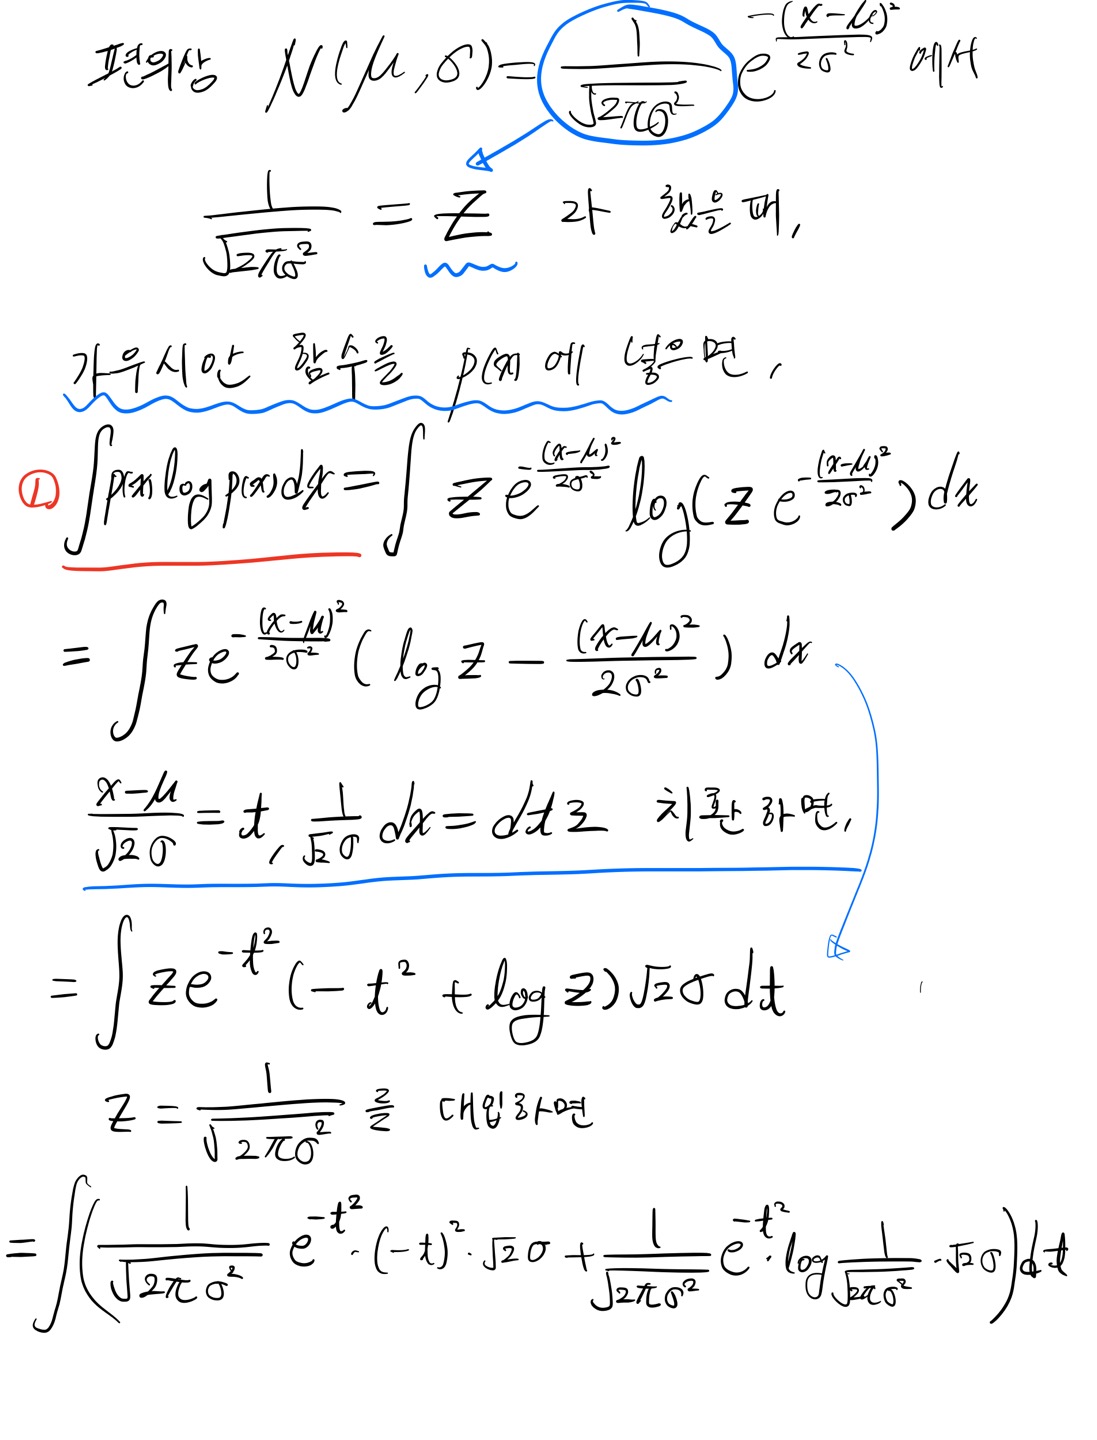 편의상 N(μ,σ)=1/√(2πσ²) e^(-(x-μ)²/2σ²) 에서
1/√(2πσ²) = Z 라 했을 때,
가우시안 함수를 p(x)에 넣으면,
① ∫p(x)log p(x)dx = ∫ z e^(-(x-μ)²/2σ²) log(z e^(-(x-μ)²/2σ²)) dx
= ∫ ze^(-(x-μ)²/2σ²) (log z - (x-μ)²/2σ²) dx
(x-μ)/(√2σ) = t, 1/(√2σ) dx = dt로 치환하면,
= ∫ ze^(-t²) (-t² + log z) √2σ dt
z = 1/√(2πσ²) 를 대입하면
= ∫(1/√(2πσ²) e^(-t²)·(-t)²·√2σ + 1/√(2πσ²) e^(-t²)·log 1/√(2πσ²)·√2σ)dt